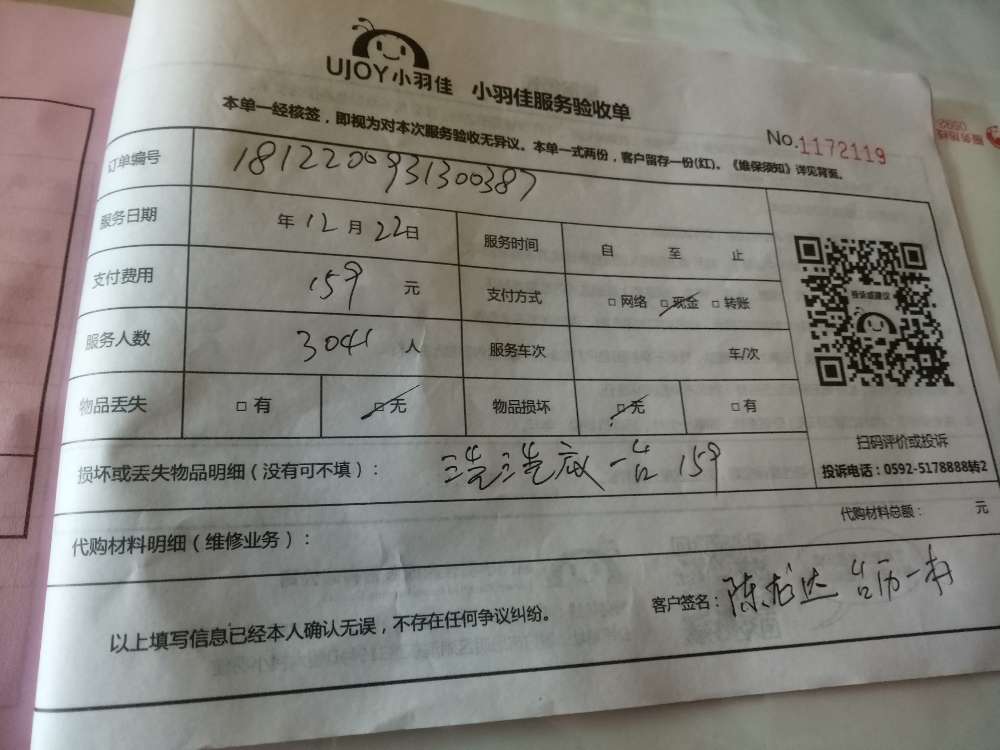 UJOY小羽佳 小羽佳服务验收单
本单一经核签，即视为对本次服务验收无异议。本单一式两份，客户留存一份(红)。《维保须知》详见背面。
No.1172119
订单编号 1812200931300387
服务日期 年12月22日 服务时间 自 至 止
支付费用 159 元 支付方式 □网络 □现金 □转账
服务人数 3041 人 服务车次 车/次
物品丢失 □有 □无 物品损坏 □无 □有
投诉或建议
扫码评价或投诉
投诉电话：0592-5178888转2
损坏或丢失物品明细（没有可不填）： 洗洗 一台 159
代购材料明细（维修业务）： 代购材料总额： 元
以上填写信息已经本人确认无误，不存在任何争议纠纷。
客户签名：陈 达 台历一本